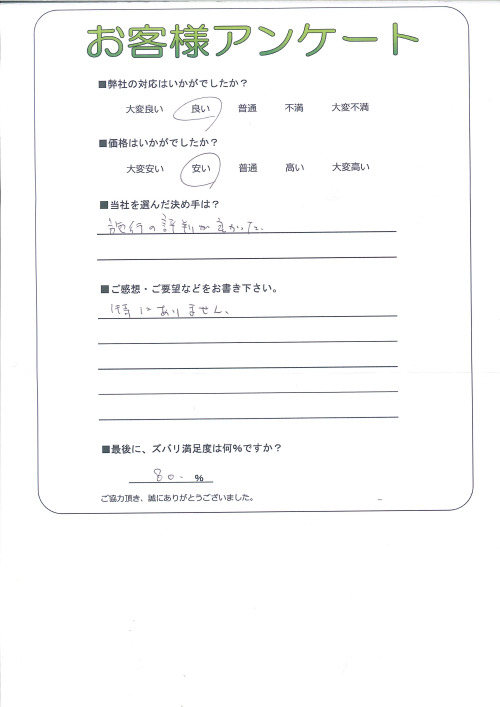 お客様アンケート
■弊社の対応はいかがでしたか？
大変良い 良い 普通 不満 大変不満
■価格はいかがでしたか？
大変安い 安い 普通 高い 大変高い
■当社を選んだ決め手は？
施行の評判が良かった。
■ご感想・ご要望などをお書き下さい。
特にありません。
■最後に、ズバリ満足度は何%ですか？
80. %
ご協力頂き、誠にありがとうございました。